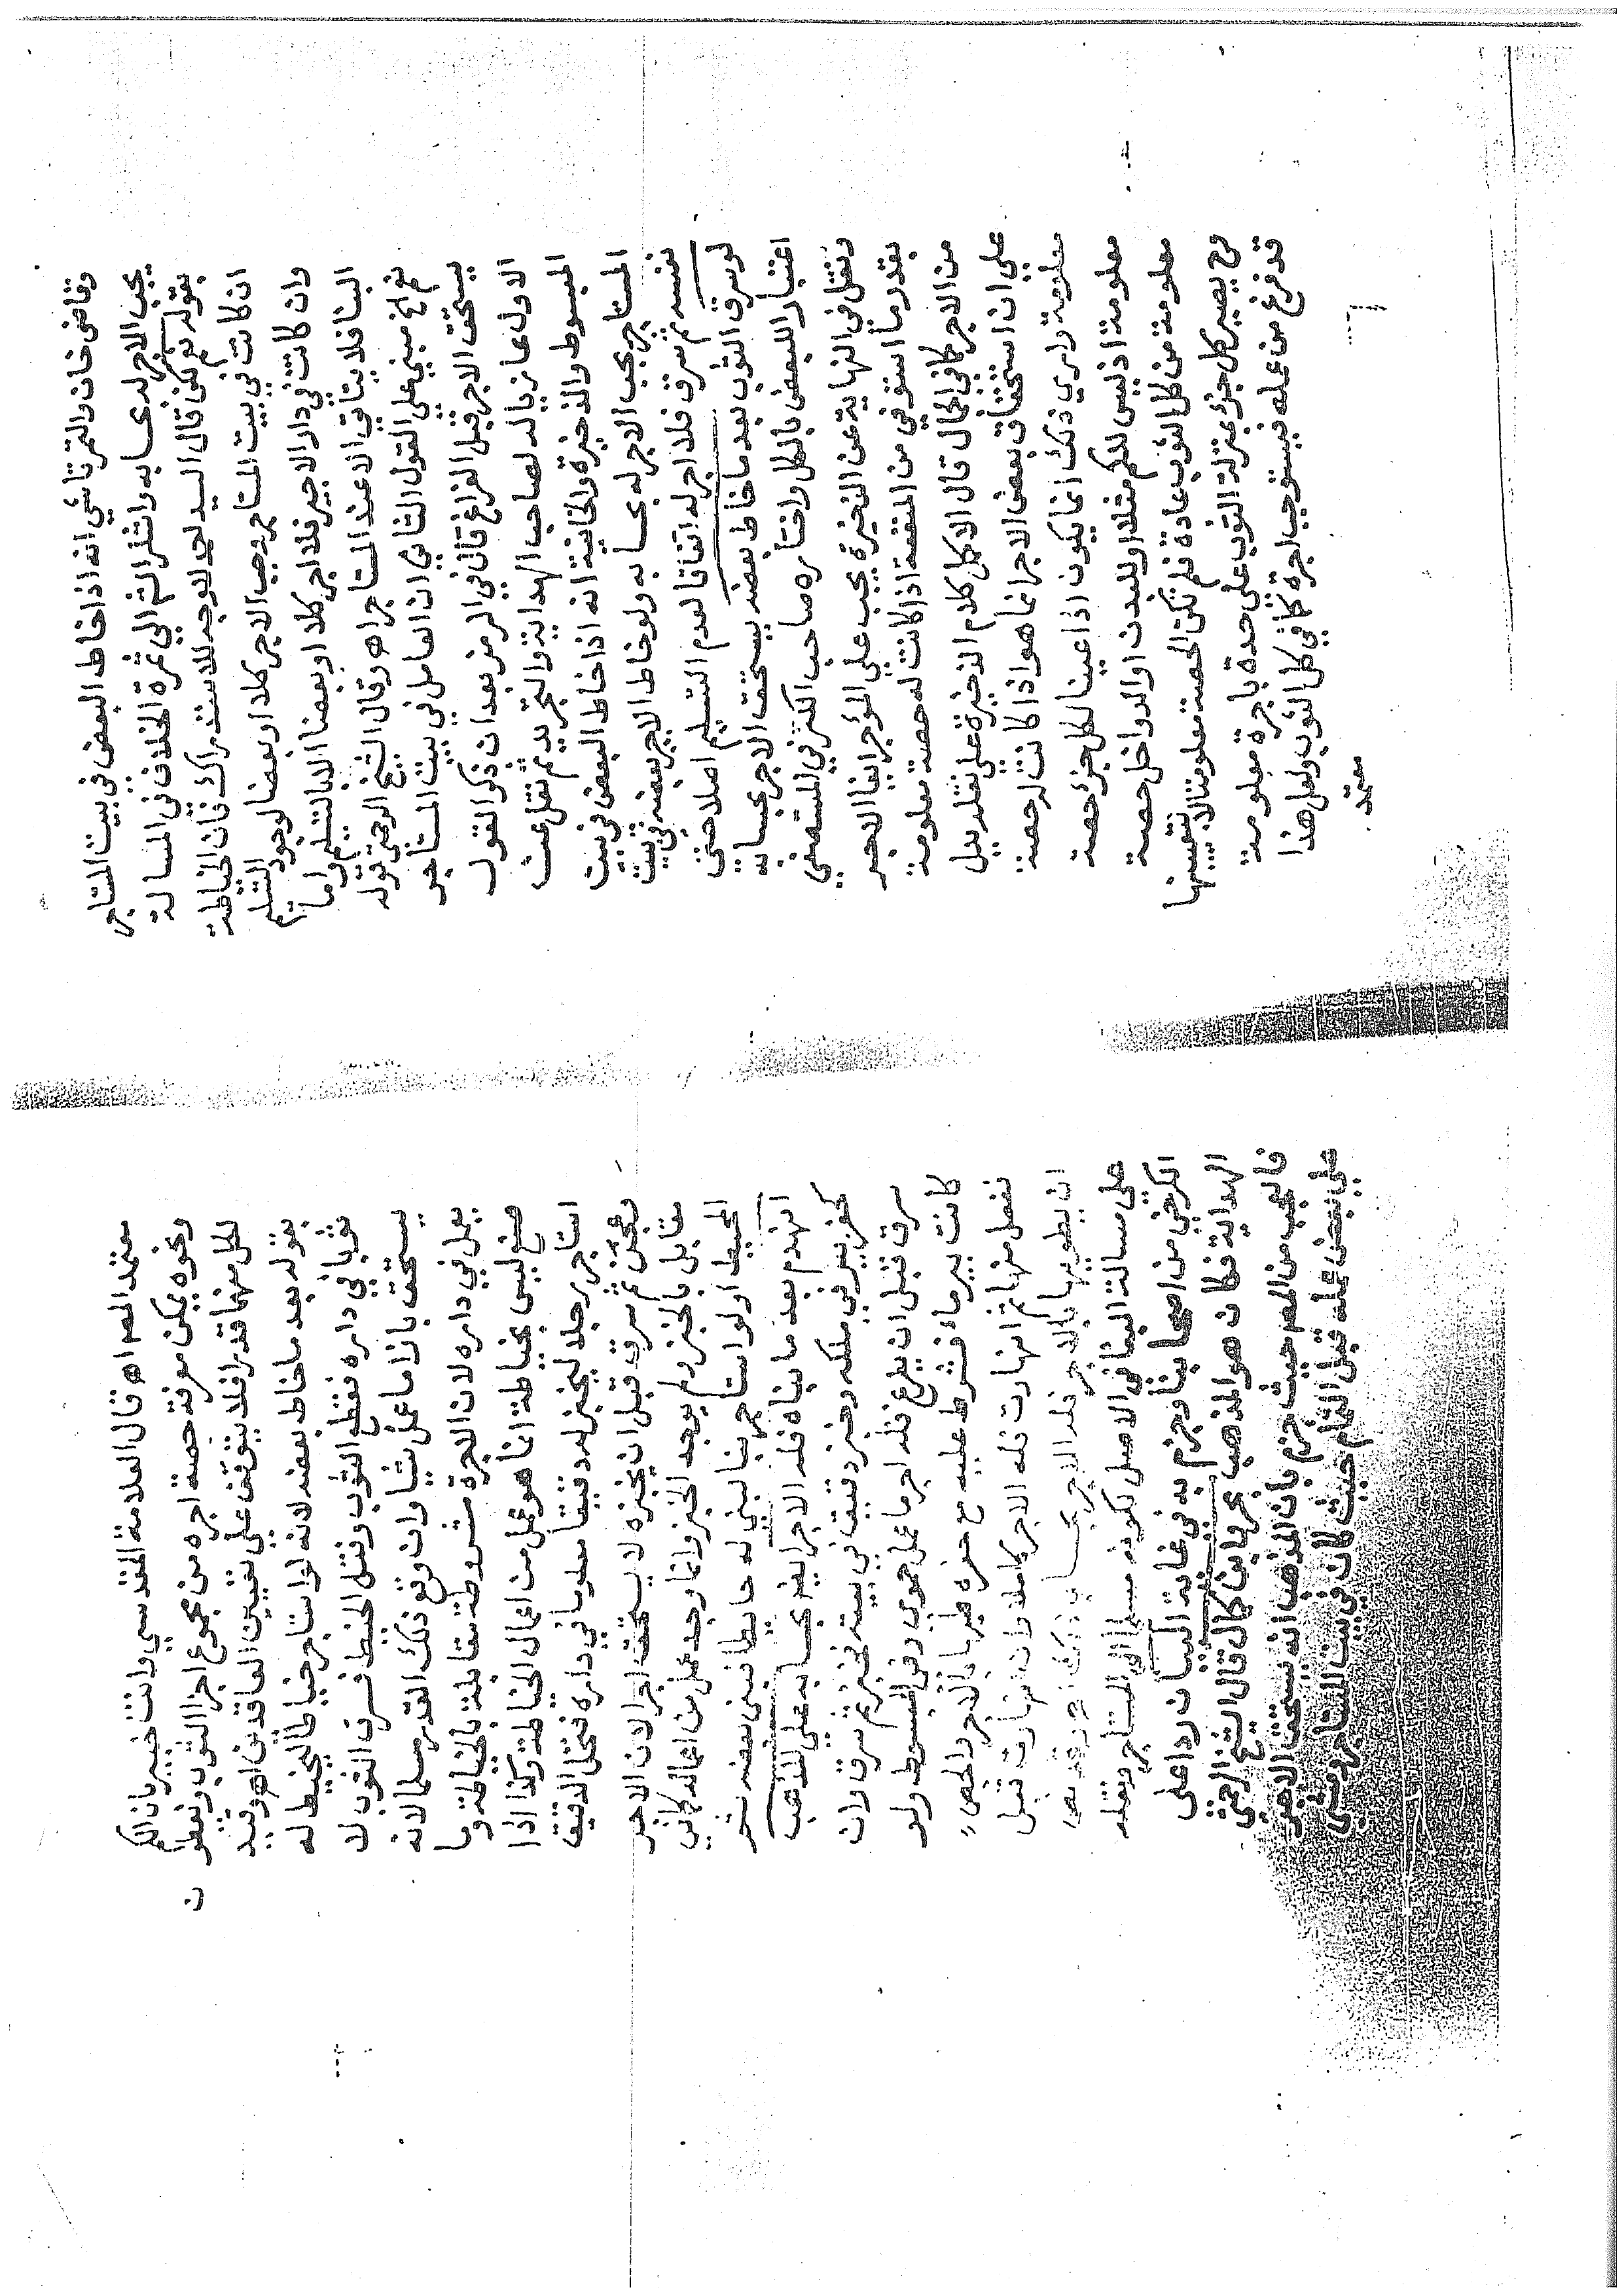 وقاضي خان والتمرتاشي انه اذا خاط البعض في بيت المستاجر
يجب الاجر له بحسابه وانتظر التم الي ثمرة الخلاف في المسالة
بقوله نعم لكن قال السيد احمد لا وجه للاستدراك فان الخياطة
ان كانت في بيت المستاجر وجب الاجر كلا او بعضا لوجود التسليم
وان كانت في دار الاجير فلا اجر كلا او بعضا الا بالتسليم واما
البنا فلا يتاتي الا عند المستاجر اه وقال الشيخ الرحمتي قوله
نعم الخ مبني علي القول الثاني ان العامل في بيت المستاجر
يستحق الاجر قبل الفراغ قال في الرمز بعد ان ذكر القول
الاول عازيا له لصاحب الهداية والتجريد ثم نقل عن
المبسوط والذخيرة والخانية انه اذا خاط البعض في بيت
المستاجر يجب الاجر له بحسابه ولو خاط الاجير بعضه في بيت
نفسه ثم سرق فلا اجر له اتفاقا لعدم التسليم اصلا حتى
لو سرق الثوب بعد ما خاط بعضه يستحق الاجر بحسابه
اعتبار للبعض بالكل واختاره صاحب الكنز في المستصفي
ونقل في النهاية عن الذخيرة يجب علي المؤجر ايفا الاجر
بقدر ما استوفي من المنفعة اذا كانت له حصة معلومة
من الاجر كما في الجمال قال الاكمل كلام الذخيرة علي نقله يدل
علي ان استحقاق بعض الاجر انما هو اذا كانت له حصة
معلومة وارى ذلك انما يكون اذا عينا لكل جزء حصة
معلومة اذ ليس للكم مثلا او للبدن او الدواخل حصة
معلومة من كل الثوب عادة فلم تكن الحصة معلومة الا بتعيينها
وح يصير كل جزء بمنزلة الثوب علي حدة باجرة معلومة
قد فرغ من عمله فيستوجب اجرة كما في كل الثوب ولعل هذا
معتمد
معتمد المص اه قال العلامة المقدسي وانت خبير بان الكم
ونحوه يمكن معرفة حصة اجره من مجموع اجزا الثوب ونعلوا
ن
لكل منهما قدرا فلا يتوقف علي تعيين العاقدين اه وقيد
بقوله بعد ما خاط بعضه لانه لو استاجر خياطا ليخيط له
ثوبا في داره فقطع الثوب وفتل الخيط فسرق الثوب لا
يستحق بازا ما عمل شيا وان وقع ذلك القدر مسلما لانه
يعمل في داره لان الاجرة مشروطة تقابلة بالخياطة وما
صنع ليس بخياطة انما هو عمل من اعمال الخياطة وكذا اذا
استاجر رجلا ليخبز له دقيقا معلوما في داره فنخل الدقيق
وعجن ثم سرق قبل ان يخبزه لا يستحق اجرا لان الاجر
مقابل بالخبز ولم يوجد الخبز وانما وجد عمل من اعماله كما في
المحيط اولو استاجر بنا ليبني له حايطا فبني بعضه ثم
انهدم بعد ما بناه فله الاجر ايضا بحسابه علي المذهب
كحفر بير في ملكه وخبز دقيق في بيته فخبز ثم سرق وان
سرق قبل ان يفرغ فله اجر ما عمل حموي وفي المبسوط ولو
كانت بير ماء فشرط عليه مع حفره طيها بالاجر والجص
ففعل منها ثم انهارت فله الاجر كاملا وان انهارت قبل
ان يطويها بالاجر فله الاجر بحساب ذلك
علي مسالة البنا في الاصل لكونه مسلما الي المستاجر ونقله
الكرخي من اصحابنا وجزم به في غاية البيان ردا علي
الهداية فكان هو المذهب بحر قال الشيخ الرحمتي
فالعجب من المص حيث جزم بان المذهب انه يستحق الاجر
علي بعض عمله قبل التمام حيث كان في بيت المستاجر ومشي